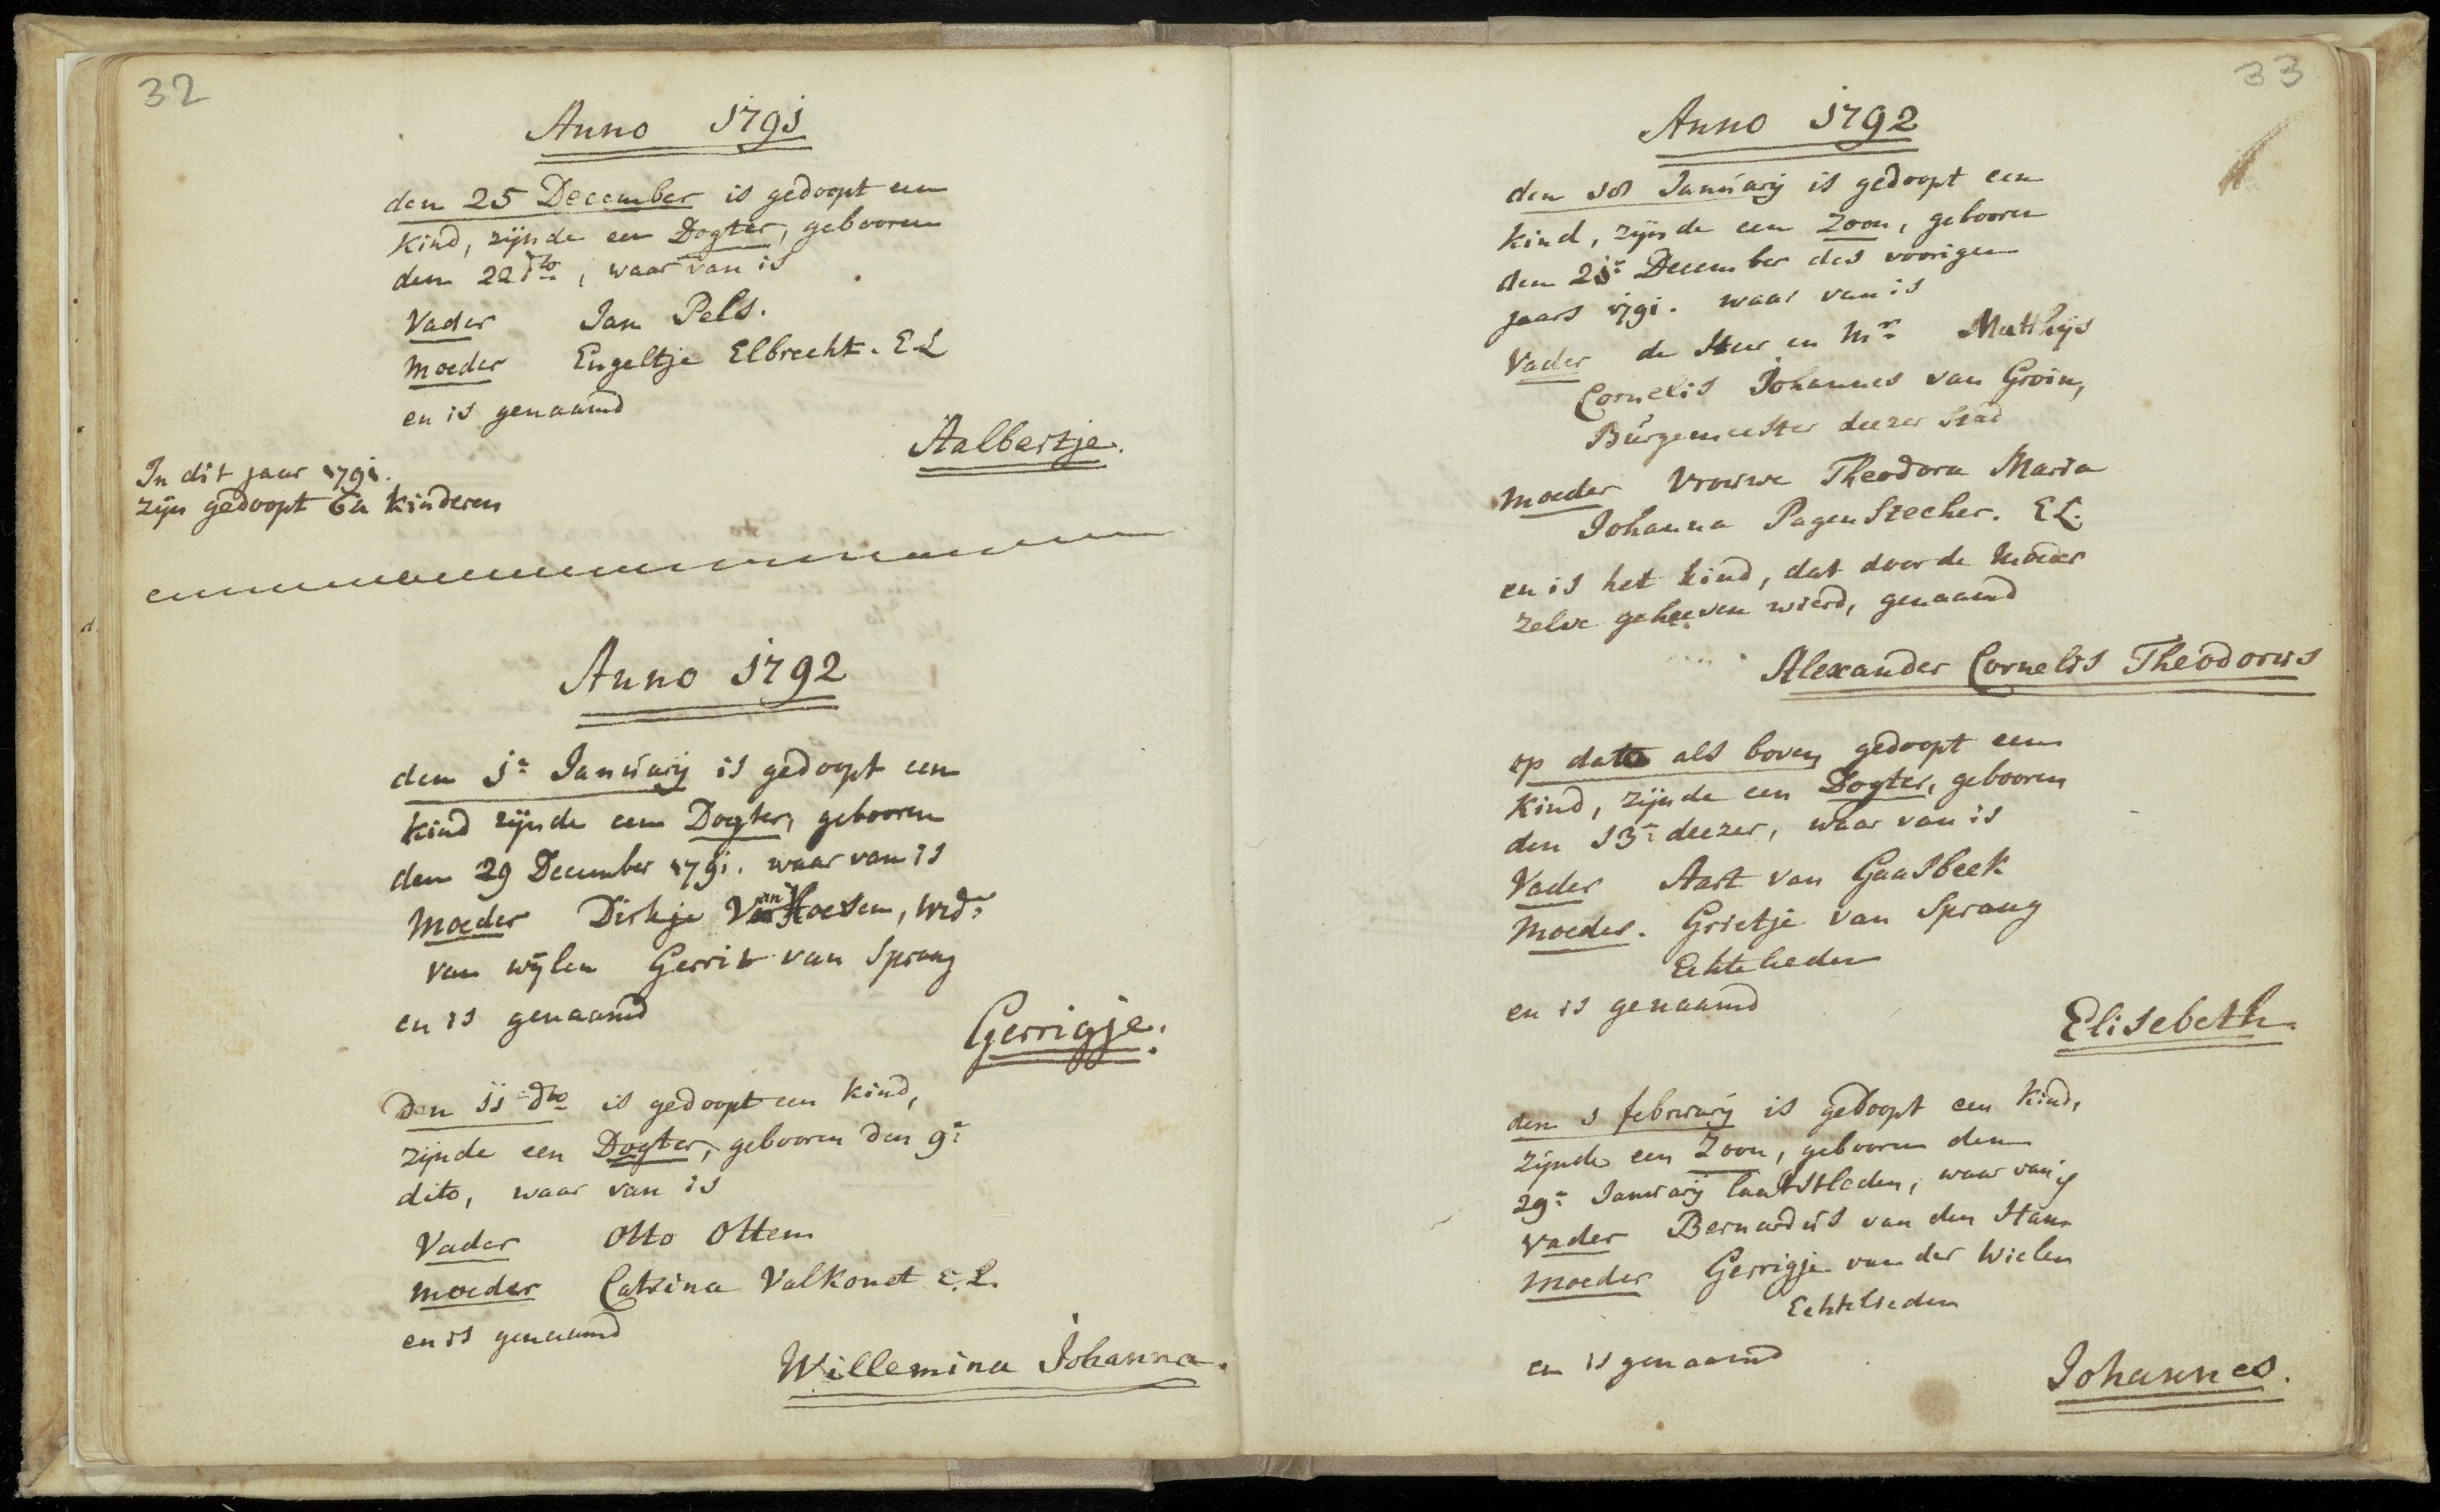 32
Anno 1791
den 25 December is gedoopt een
kind, zijnde een Dogter, gebooren
den 22 dto, waar van is
Vader Jan Pels.
Moeder Engeltje Elbrecht. E L
en is genaamd
Aalbertje.
In dit jaar 1791.
zijn gedoopt kinderen
Anno 1792
den 1e Januarij is gedoopt een
kind zijnde een Dogter, gebooren
den 29 December 1791. waar van is
Moeder Dirkje van Hoesen, wed:
van wijlen Gerrit van Sprang
en is genaamd
Gerrigje.
Den 11 dto is gedoopt een kind,
zijnde een Dogter, gebooren den 9e
dito, waar van is
Vader Otto Otten
Moeder Catrina Valkonet E. L.
en is genaamd
Willemina Johanna.
33
Anno 1792
den 18 Januarij is gedoopt een
kind, zijnde een Zoon, gebooren
den 21e December des voorigen
jaars 1791. waar van is
Vader de Heer en Mr Matthijs
Cornelis Johannes van Groin,
Burgemeester deezer Stad
Moeder Vrouwe Theodora Maria
Johanna PagenStecher. E L.
en is het kind, dat door de Moeder
zelve geheeven wierd, genaamd
Alexander Cornelis Theodorus
op dato als boven gedoopt een
Kind, zijnde een Dogter, gebooren
den 13e deezer, waar van is
Vader Aart van Gaasbeek
Moeder. Grietje van Sprang
Echtelieden
en is genaamd
Elisebeth.
den 1 februarij is gedoopt een Kind,
zijnde een Zoon, gebooren den
29e Januarij laatstleden, waar van is
Vader Bernardus van den Ham
Moeder Gerrigje van der Wielen
Echtelieden
en is genaamd
Johannes.